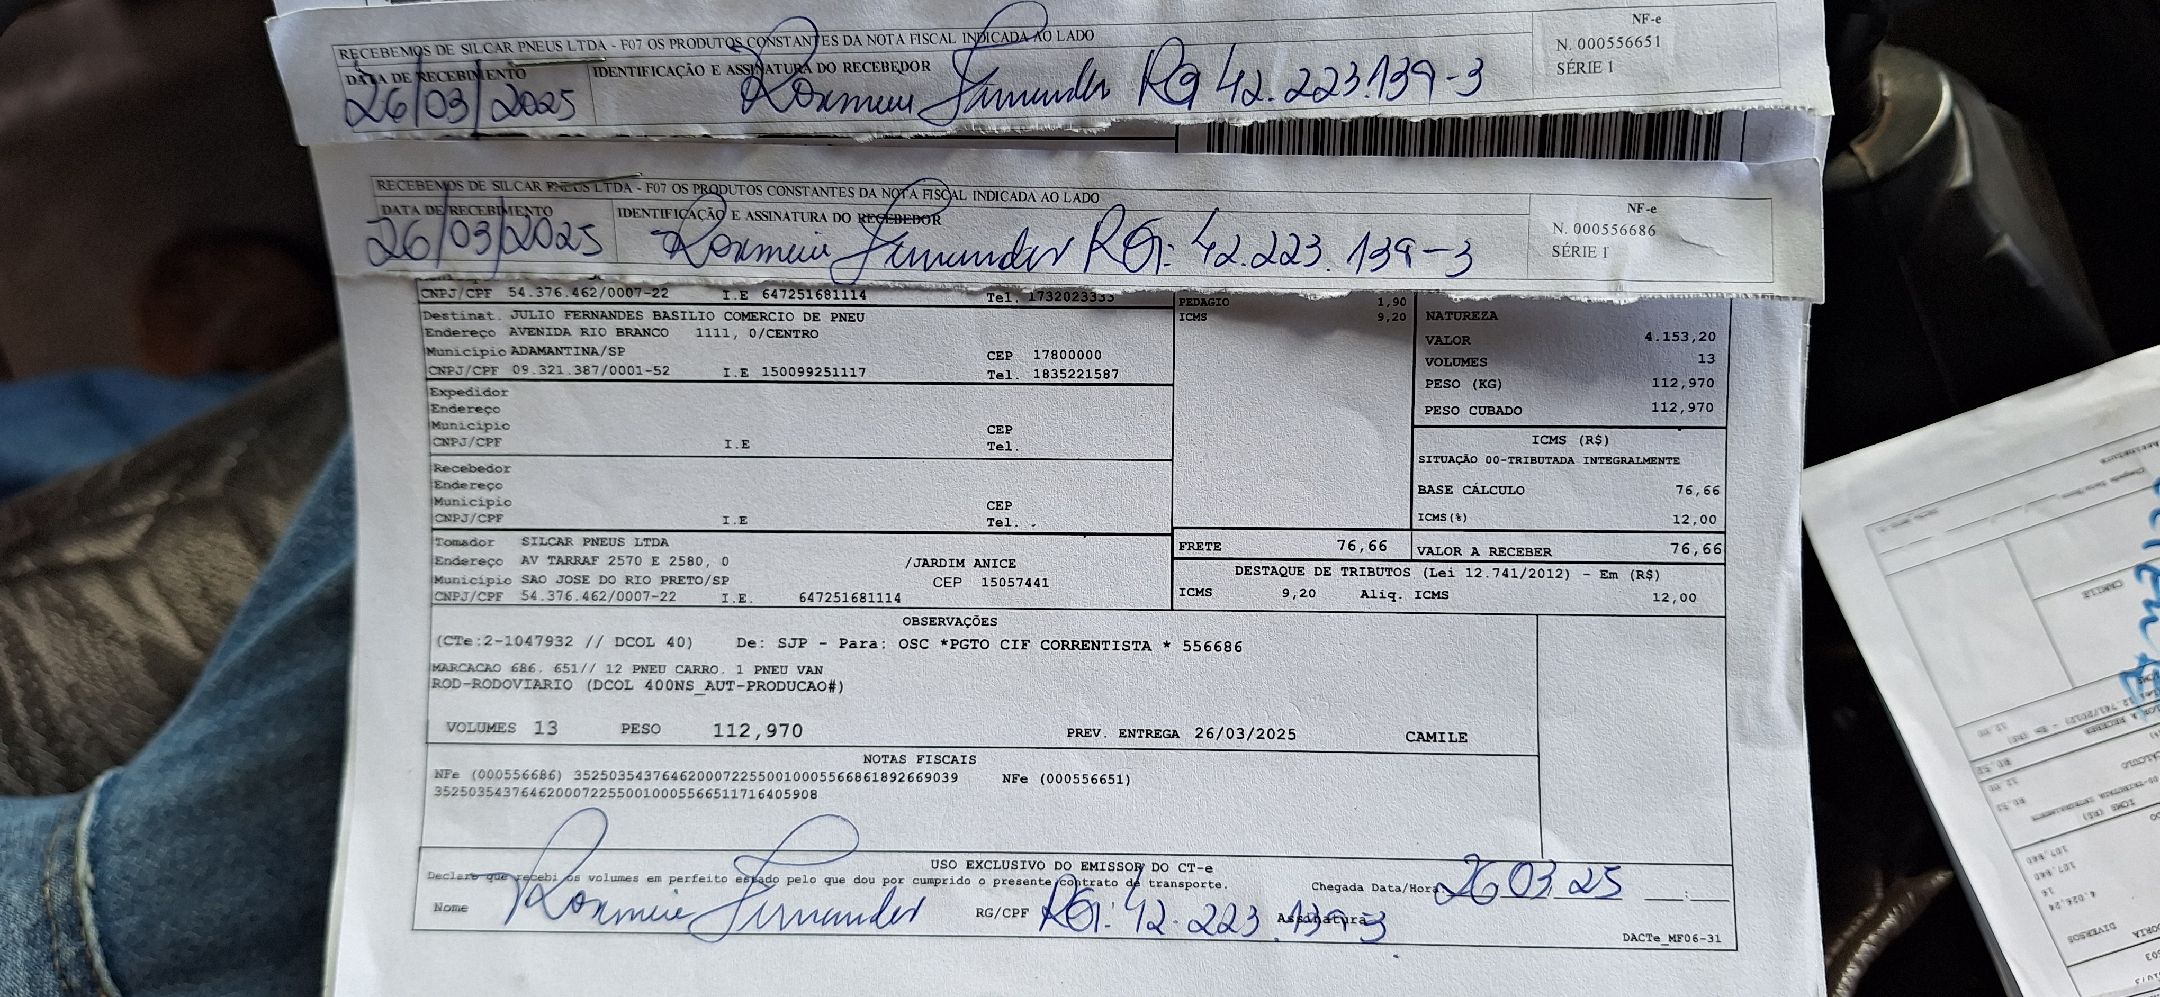 RECEBEMOS DE SILCAR PNEUS LTDA - F07 OS PRODUTOS CONSTANTES DA NOTA FISCAL INDICADA AO LADO
NF-e
N. 000556651
SÉRIE 1
DATA DE RECEBIMENTO
IDENTIFICAÇÃO E ASSINATURA DO RECEBEDOR
26/03/2025
Fernandes RG 42.223.139-3
RECEBEMOS DE SILCAR PNEUS LTDA - F07 OS PRODUTOS CONSTANTES DA NOTA FISCAL INDICADA AO LADO
NF-e
N. 000556686
SÉRIE 1
DATA DE RECEBIMENTO
IDENTIFICAÇÃO E ASSINATURA DO RECEBEDOR
26/03/2025
Fernandes RG: 42.223.139-3
CNPJ/CPF 54.376.462/0007-22 I.E 647251681114 Tel. 1732023333
Destinat. JULIO FERNANDES BASILIO COMERCIO DE PNEU
Endereço AVENIDA RIO BRANCO 1111, 0/CENTRO
Município ADAMANTINA/SP CEP 17800000
CNPJ/CPF 09.321.387/0001-52 I.E 150099251117 Tel. 1835221587
Expedidor
Endereço
Município CEP
CNPJ/CPF I.E Tel.
Recebedor
Endereço
Município CEP
CNPJ/CPF I.E Tel.
Tomador SILCAR PNEUS LTDA
Endereço AV TARRAF 2570 E 2580, 0 /JARDIM ANICE
Município SAO JOSE DO RIO PRETO/SP CEP 15057441
CNPJ/CPF 54.376.462/0007-22 I.E. 647251681114
PEDAGIO 1,90
ICMS 9,20
NATUREZA
VALOR 4.153,20
VOLUMES 13
PESO (KG) 112,970
PESO CUBADO 112,970
ICMS (R$)
SITUAÇÃO 00-TRIBUTADA INTEGRALMENTE
BASE CÁLCULO 76,66
ICMS(%) 12,00
FRETE 76,66
VALOR A RECEBER 76,66
DESTAQUE DE TRIBUTOS (Lei 12.741/2012) - Em (R$)
ICMS 9,20 Aliq. ICMS 12,00
OBSERVAÇÕES
(CTe:2-1047932 // DCOL 40) De: SJP - Para: OSC *PGTO CIF CORRENTISTA * 556686
MARCACAO 686, 651// 12 PNEU CARRO, 1 PNEU VAN
ROD-RODOVIARIO (DCOL 400NS_AUT-PRODUCAO#)
VOLUMES 13 PESO 112,970 PREV. ENTREGA 26/03/2025 CAMILE
NOTAS FISCAIS
NFe (000556686) 35250354376462000722550010005566861892669039 NFe (000556651)
35250354376462000722550010005566511716405908
USO EXCLUSIVO DO EMISSOR DO CT-e
Declaro que recebi os volumes em perfeito estado pelo que dou por cumprido o presente contrato de transporte.
Chegada Data/Hora 26 03 25
Nome Fernandes RG/CPF RG: 42.223.139-3 Assinatura
DACTe_MF06-31